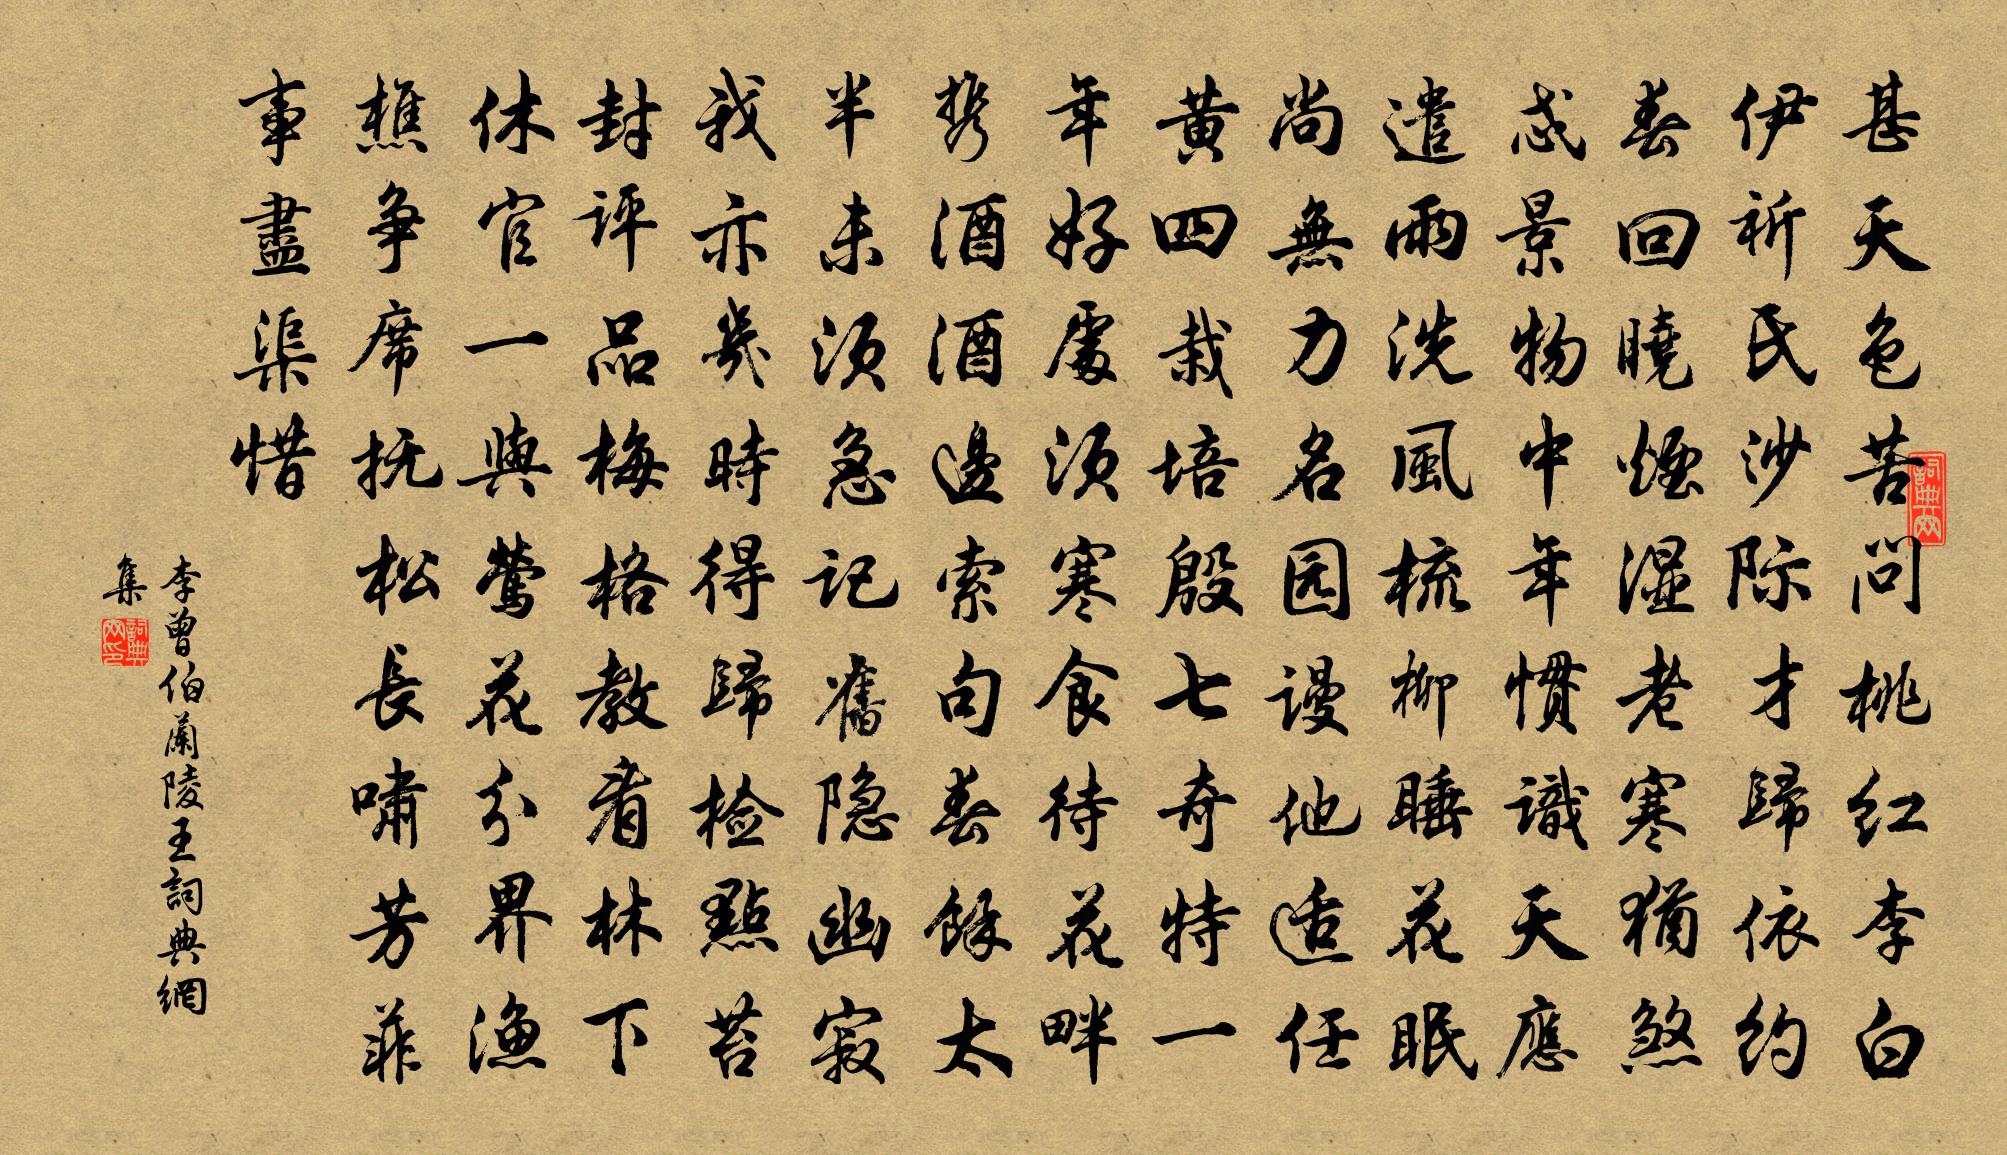 甚天色苦問桃红李白
伊祈氏沙际才歸依约
春回曉煙湿老寒猶煞
忒景物中年慣識天應
遣雨洗風梳柳睡花眠
尚無力名园謾他适任
黄四栽培殷七奇特一
年好處須寒食待花畔
携酒酒邊索句春餘太
半未須急記舊隐幽寂
我亦幾時得歸检點苔
封評品梅格教看林下
休官一與鶯花分界漁
樵争席抚松長啸芳菲
事盡渠惜
李曾伯蘭陵王詞典網
集
詞典网
詞典网印